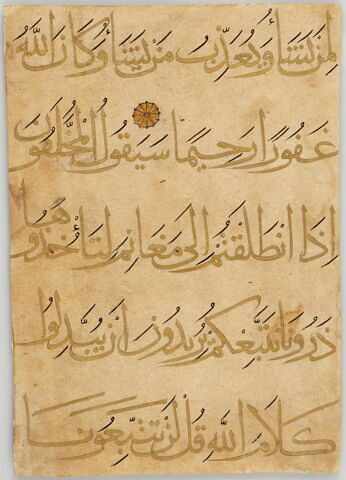 لِمَنْ يَشَاءُ وَيُعَذِّبُ مَنْ يَشَاءُ وَكَانَ اللَّهُ
غَفُورًا رَحِيمًا سَيَقُولُ الْمُخَلَّفُونَ
إِذَا انْطَلَقْتُمْ إِلَى مَغَانِمَ لِتَأْخُذُوهَا
ذَرُونَا نَتَّبِعْكُمْ يُرِيدُونَ أَنْ يُبَدِّلُوا
كَلَامَ اللَّهِ قُلْ لَنْ تَتَّبِعُونَا